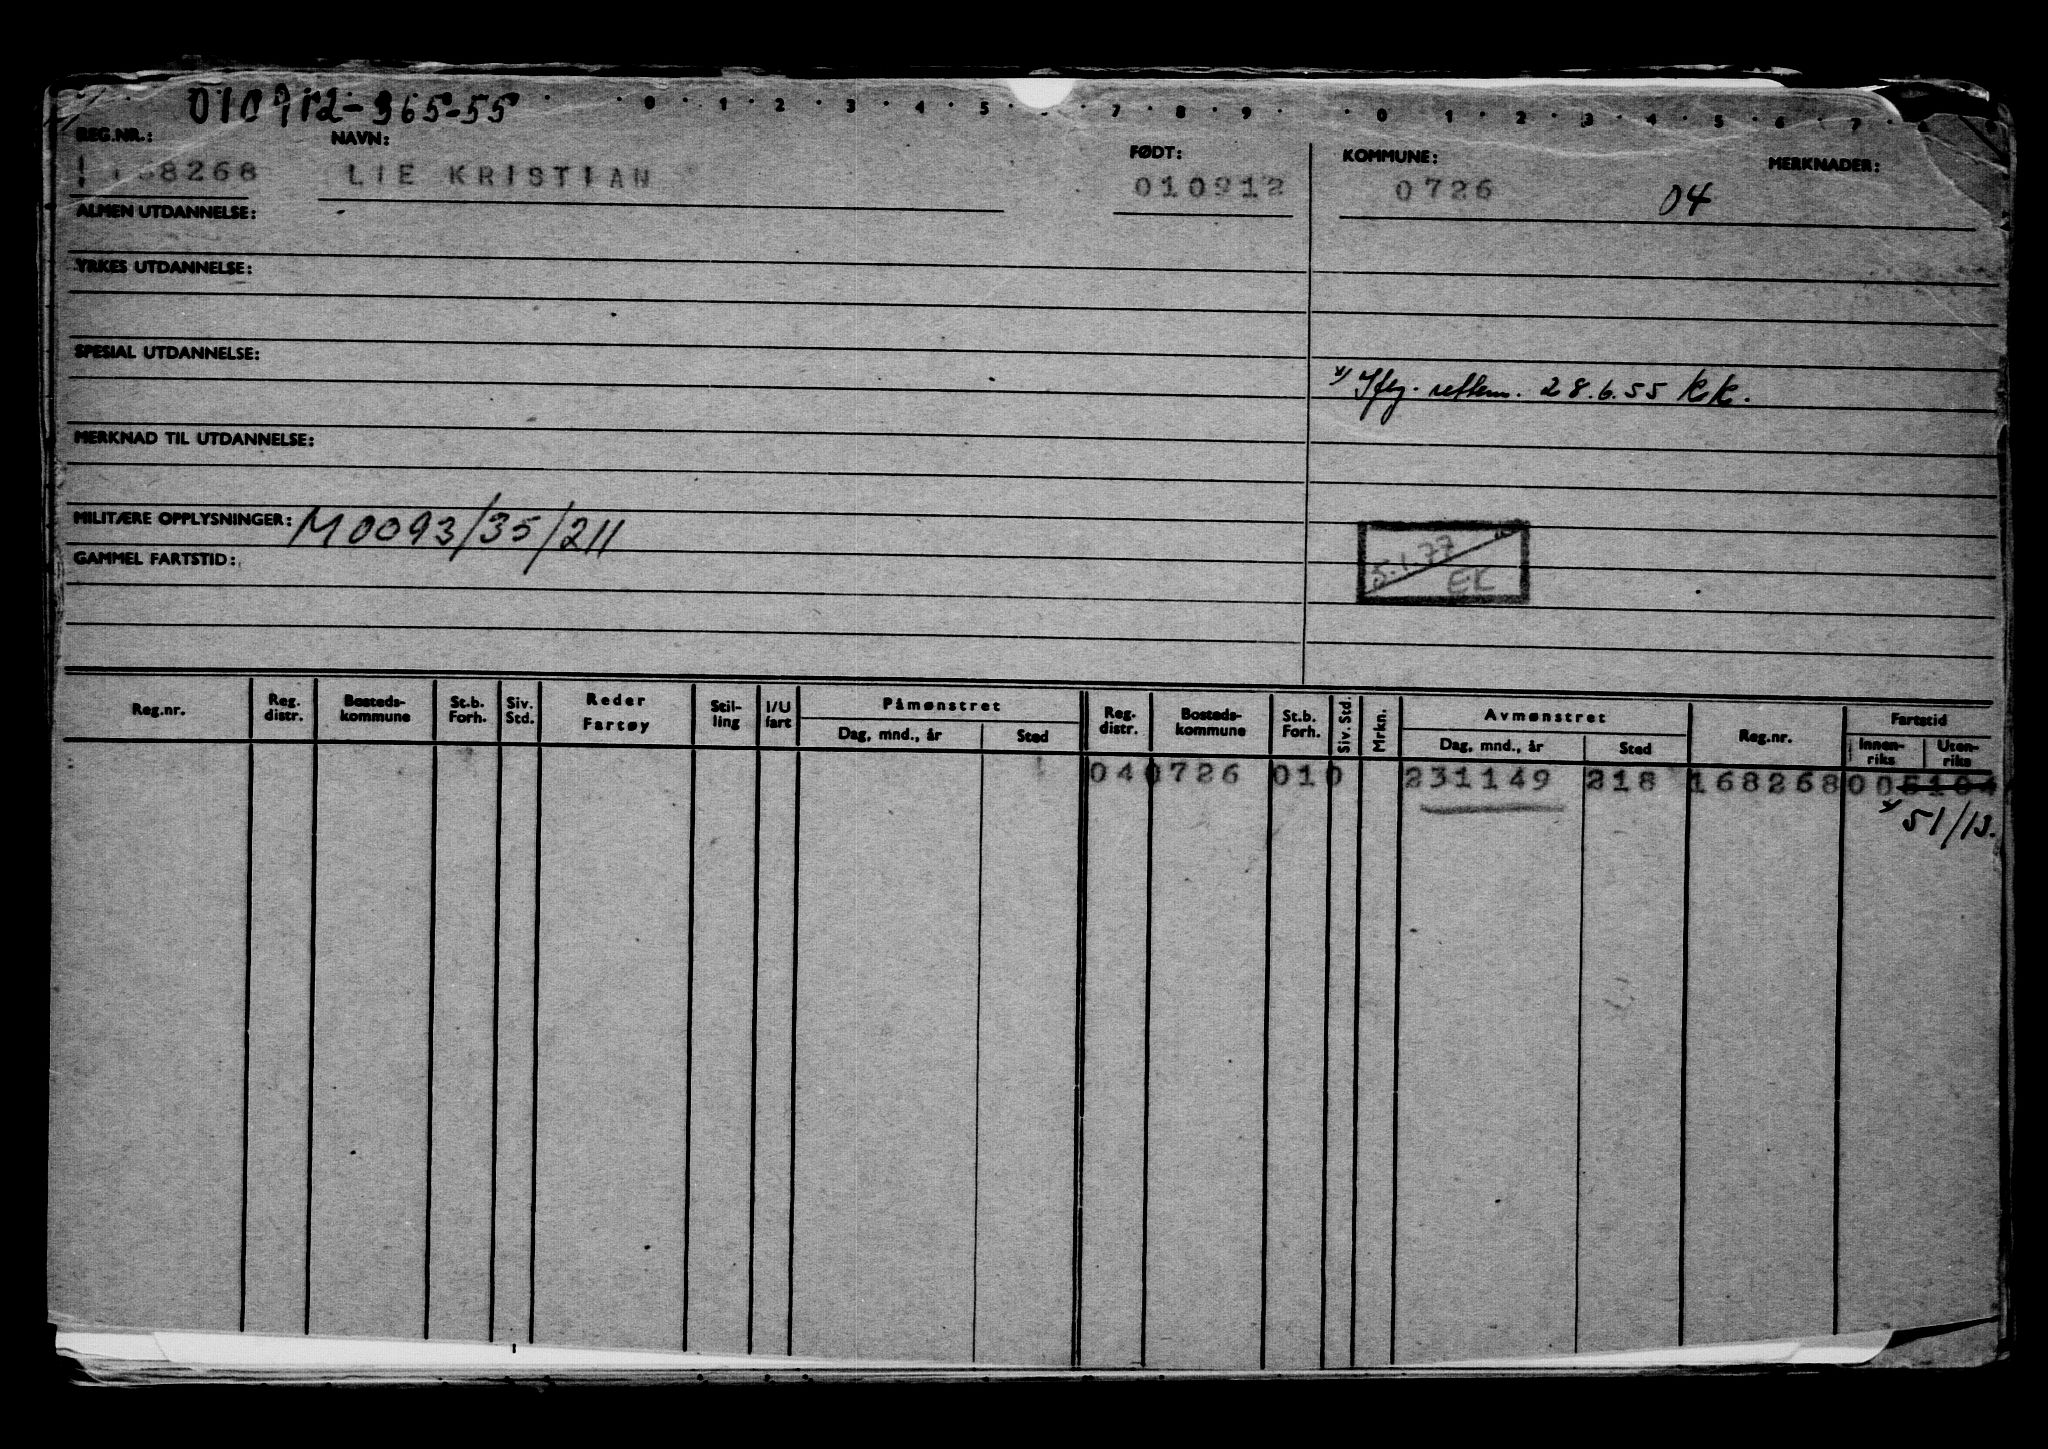 010912-365-55
0 1 2 3 4 5 7 8 9 0 1 2 3 4 5 6 7 8
REG.NR.: NAVN: FØDT: KOMMUNE: MERKNADER:
168268 LIE KRISTIAN 010912 0726 04
ALMEN UTDANNELSE:
YRKES UTDANNELSE:
SPESIAL UTDANNELSE:
x) Ifлg. 28.6.55 KK.
MERKNAD TIL UTDANNELSE:
MILITÆRE OPPLYSNINGER: M0093/35/211
5.1.77
EK
GAMMEL FARTSTID:
Reg.nr. Reg. distr. Bosteds-kommune St.b. Forh. Siv. Std. Reder Fartøy Stil-ling I/U fart Påmønstret Dag, mnd., år Sted Reg. distr. Bosteds-kommune St.b. Forh. Siv. Std. Mrkn. Avmønstret Dag, mnd., år Sted Reg.nr. Fartstid Innen-riks Uten-riks
040726 010 231149 218 168268005104
x) 51/13.